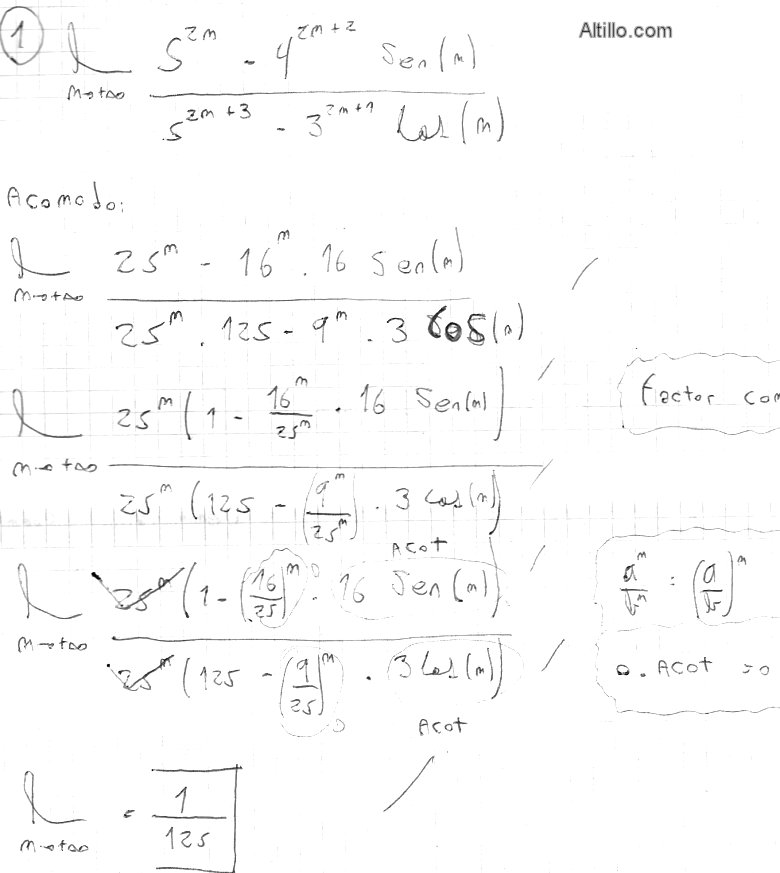 Altillo.com
1 L n→+∞ (5^{2n} - 4^{2n+2} Sen(n)) / (5^{2n+3} - 3^{2n+1} Cos(n))
Acomodo:
L n→+∞ (25^n - 16^n . 16 Sen(n)) / (25^n . 125 - 9^n . 3 Cos(n))
L n→+∞ (25^n (1 - 16^n/25^n . 16 Sen(n))) / (25^n (125 - (9^n/25^n) . 3 Cos(n)))
Factor com
Acot
L n→+∞ (25^n (1 - (16/25)^n . 16 Sen(n))) / (25^n (125 - (9/25)^n . 3 Cos(n)))
0
0
Acot
a^n/b^n = (a/b)^n
0. Acot → 0
L n→+∞ = 1/125